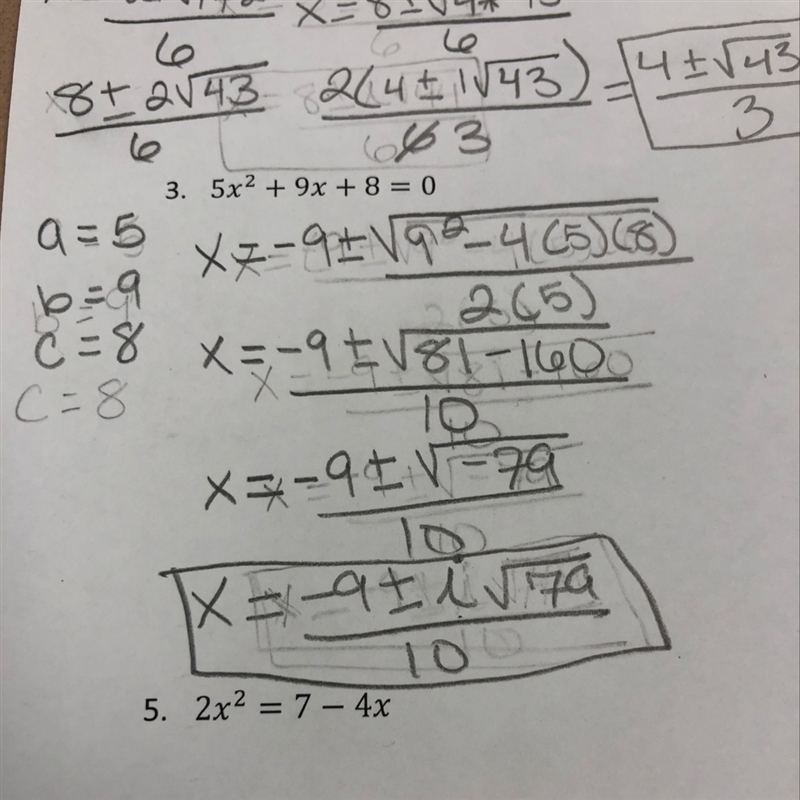 6 x = 8 ± √ 6
8 ± 2√43 / 6 2(4 ± 1√43) / 6 3 = 4 ± √43 / 3
3. 5x² + 9x + 8 = 0
a = 5
b = 9
c = 8
c = 8
x = -9 ± √9² - 4(5)(8) / 2(5)
x = -9 ± √81 - 160 / 10
x = -9 ± √-79 / 10
x = -9 ± i√79 / 10
5. 2x² = 7 − 4x